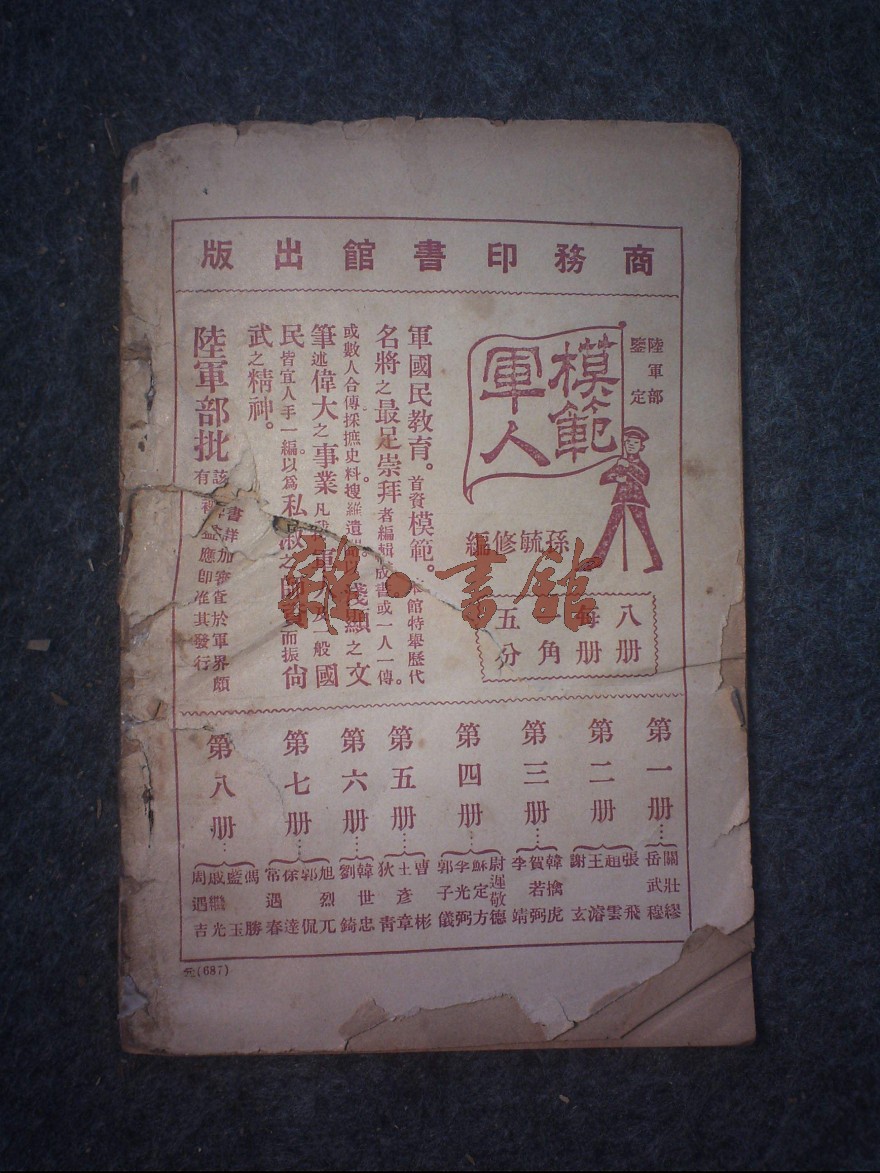 商務印書館出版
陸軍部
鑒定
模範
軍人
孫毓修編
八册
每册
角
五分
軍國民教育。首資模範。本館特舉歷代
名將之最足崇拜者編輯成書或一人一傳。
或數人合傳採摭史料。搜羅遺 淺顯之文
筆述偉大之事業凡我軍人及一般國
民皆宜人手一編。以爲私淑之師資而振尙
武之精神。
陸軍部批
該書詳加審查於軍界頗
有裨益應卽准其發行
第一册…
關壯繆
岳武穆
第二册
張飛
趙雲
王濬
謝玄
第三册…
韓擒虎
賀若弼
李靖
第四册…
尉遲敬德
蘇定方
李光弼
郭子儀
第五册…
曹彬
王彥章
狄青
第六册…
韓世忠
劉錡
第七册…
旭烈兀
郭侃
徐達
常遇春
第八册…
馮勝
藍玉
戚繼光
周遇吉
元(687)
雜·書館